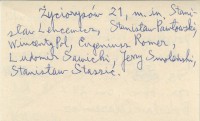 Życiorysów 21, m.in. Stani-
sław Lencewicz, Stanisław Pawłowski,
Wincenty Pol, Eugeniusz Romer,
Ludomir Sawicki, Jerzy Smoleński,
Stanisław Staszic.